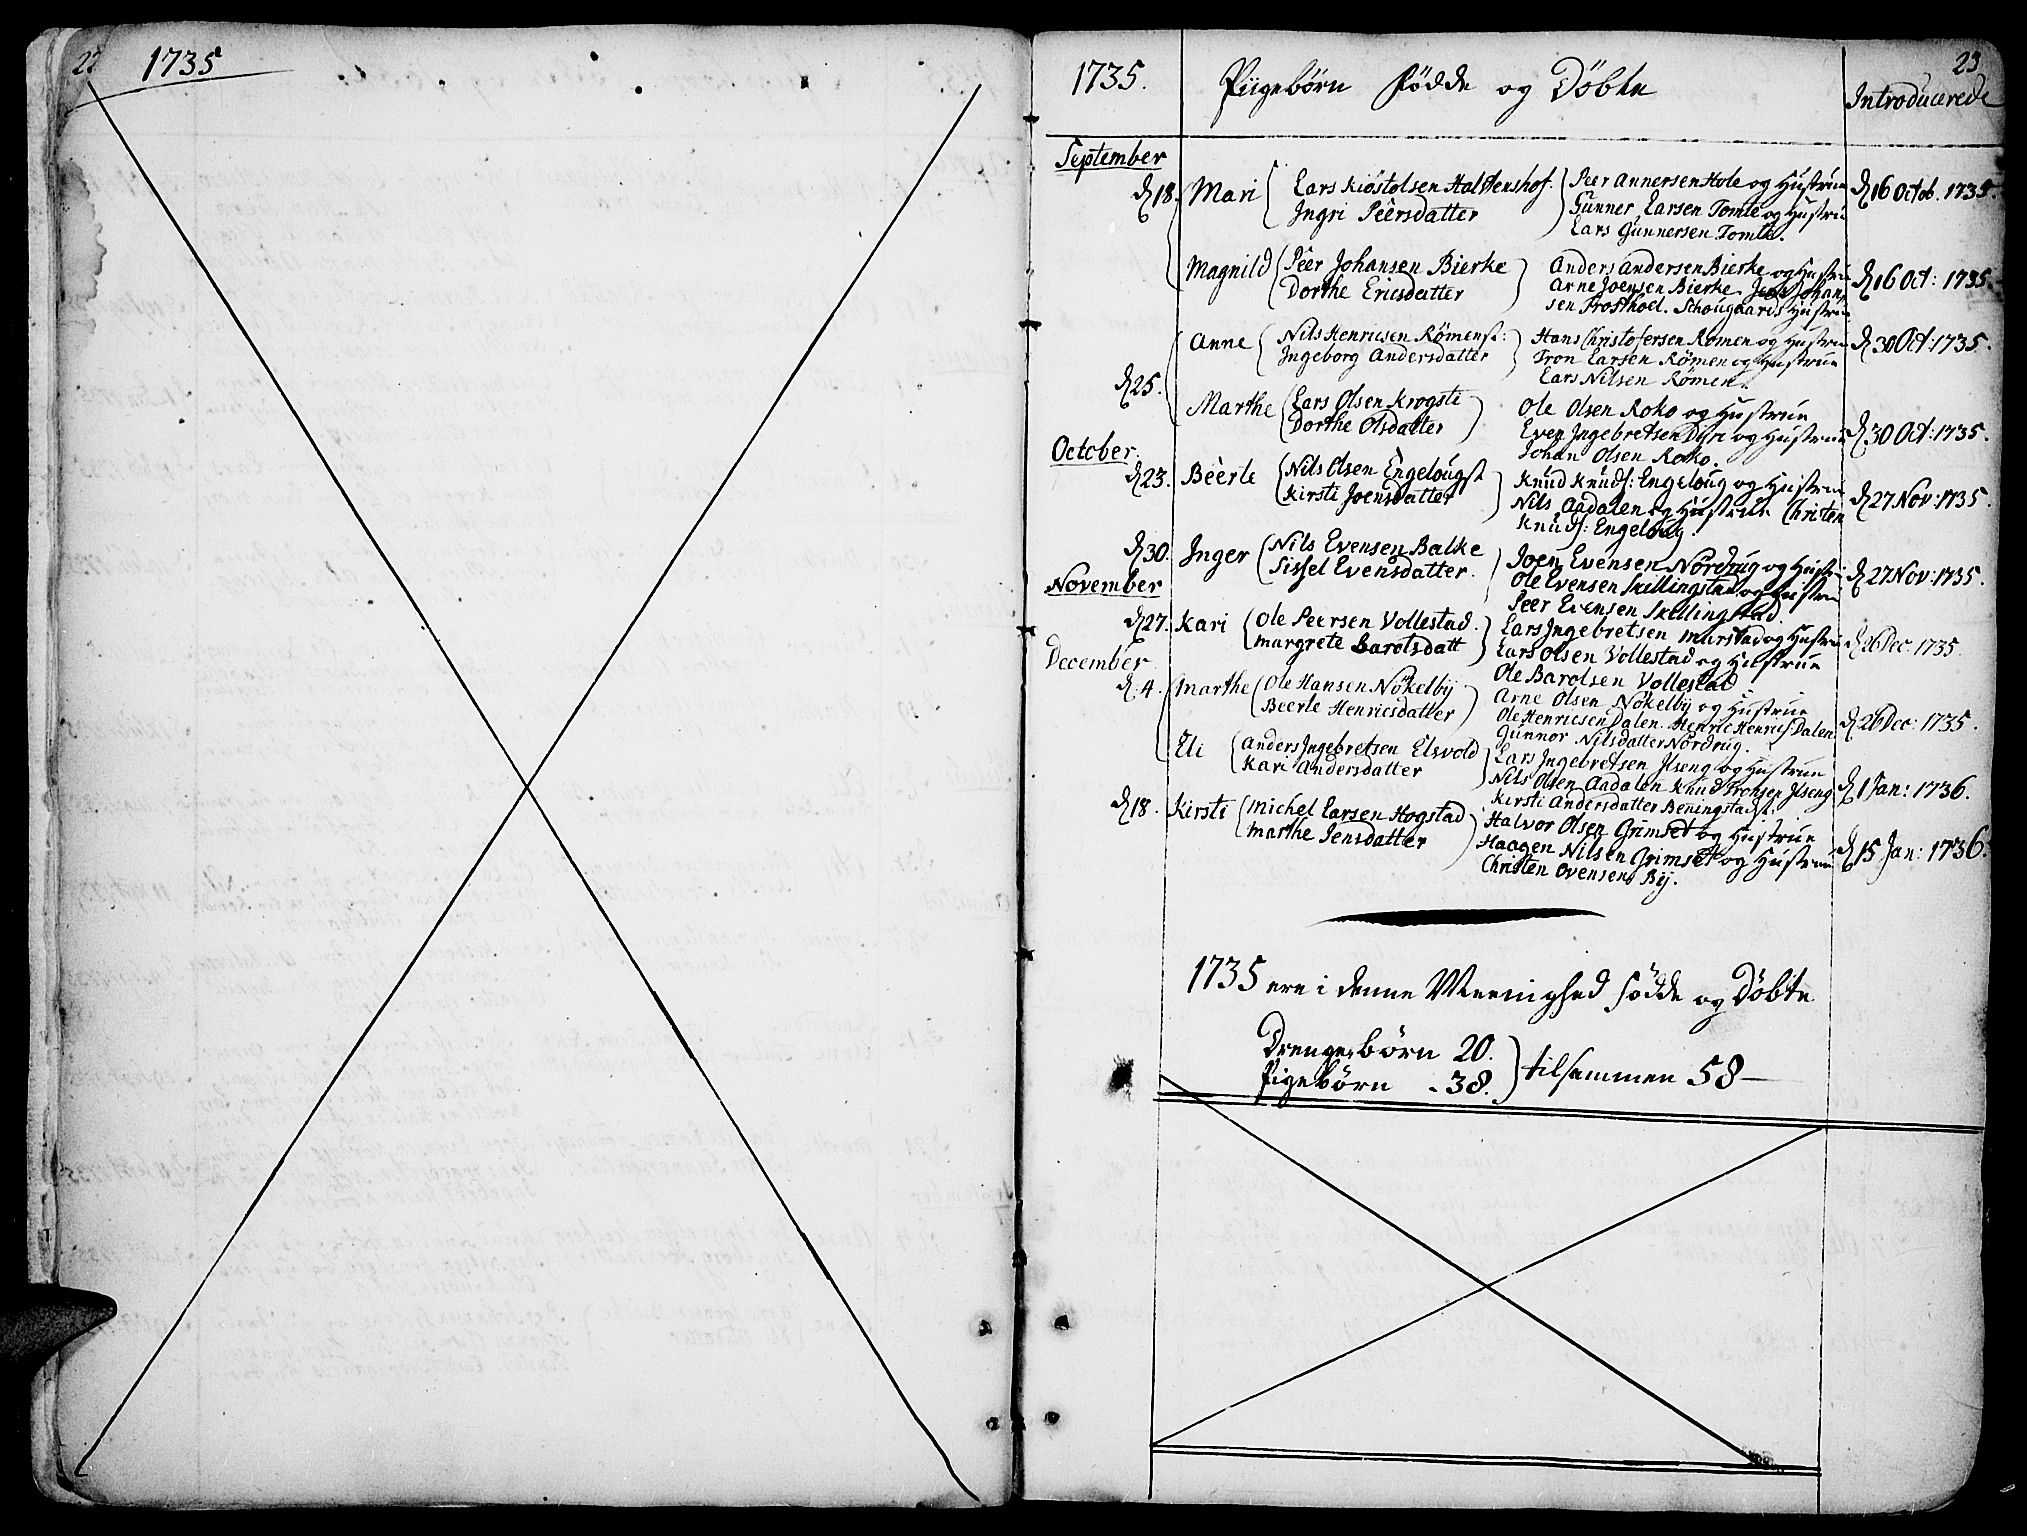 22 1735
23
1735. Piigebörn Födde og Döbte Introducerede
September
d 18. Mari Lars Kiöstolsen Halstenshof. Peer Annersen Hole og Hustrue d 16 Octob. 1735.
Ingri Peersdatter Gunner Larsen Tomte og Hustrue
Lars Gunnersen Tomte.
Magnild Peer Johansen Bierke Anders Andersen Bierke og Hustrue d 16 Oct: 1735.
Dorthe Ericsdatter Arne Joensen Bierke Johan
sen Frosthoel. Schougaards Hustrue
Anne Nils Henricsen Römens: Hans Christofersen Romen og Hustrue d 30 Oct: 1735.
Ingeborg Andersdatter Tron Larsen Römen og Hustrue
Lars Nilsen Römen.
d 25.
Marthe Lars Olsen Krogsti Ole Olsen Roko og Hustrue d 30 Oct: 1735.
Dorthe Olsdatter Even Ingebretsen Dyre og Hustrue
Johan Olsen Roko.
October.
d 23. Beerte Nils Olsen Engelougst Knud Knuds: Engeloug og Hustrue d 27 Nov: 1735.
Kirsti Joensdatter Nils Aadalen og Hustrue Christen
Knuds: Engeloug.
d 30. Inger Nils Evensen Balke Joen Evensen Nordrug og Hustrue d 27 Nov: 1735.
Sissel Evensdatter. Ole Evensen Skillingstad og Hustrue
Peer Evensen Skillingstad.
November
d 27. Kari Ole Peersen Vollestad. Lars Ingebretsen Murstad og Hustrue d 26 Dec: 1735.
Margrete Barolsdatt Lars Olsen Vollestad og Hustrue
Ole Barolsen Vollestad
December
d. 4. Marthe Ole Hansen Nökelbij Arne Olsen Nökelbij og Hustrue d 26 Dec: 1735.
Beerte Henricsdatter Ole Henricsen Dalen. Henric Henrics Dalen
Gunnor Nilsdatter Nordrug.
Eli Anders Ingebretsen Elsvold Lars Ingebretsen Ilseng og Hustrue d 1 Jan: 1736.
Kari Andersdatter Nils Olsen Aadalen Knud Tronsen Ilseng
Kirsti Andersdatter Beningstadst.
d 18. Kirsti Michel Larsen Hogstad Halvor Olsen Grimset og Hustrue d 15 Jan: 1736.
Marthe Jensdatter Haagen Nilsen Grimset og Hustrue
Christen Ovensen Bij.
1735 ere i denne Meenighed födde og Döbte
Drengebörn 20.
Pigebörn - 38. tilsammen 58